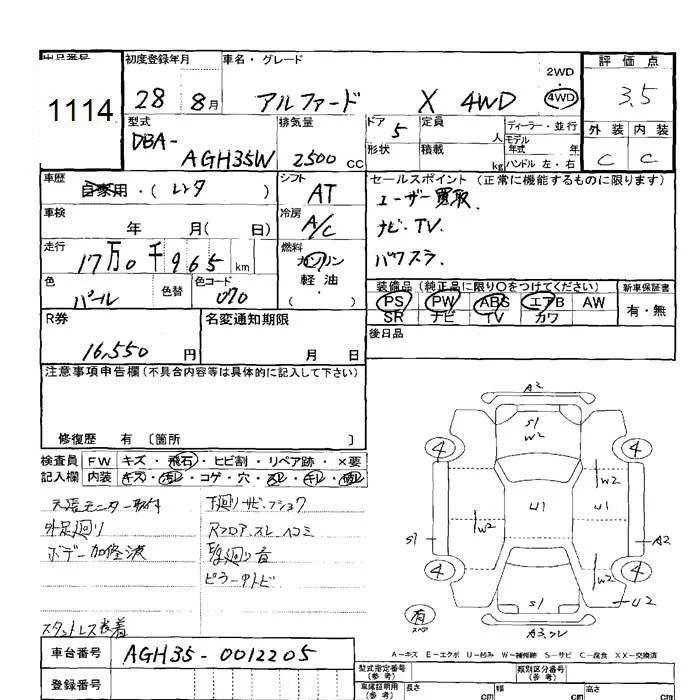 出品番号
1114
初度登録年月
28 8月
車名・グレード
アルファード X 4WD
2WD
4WD
評価点
3.5
外装 内装
C C
型式
DBA-
AGH35W
排気量
2500 CC
ドア 5
形状
定員 人
積載 kg
ディーラー・並行
モデル年式 年
ハンドル 左・右
車歴
自家用・(レンタ)
シフト
AT
セールスポイント (正常に機能するものに限ります)
ユーザー買取
ナビ・TV
バックスラ
車検
年 月( 日)
冷房
A/C
走行
17万0千965 km
燃料
ガソリン
軽油・
( )
色
パール
色替
色コード
070
装備品 (純正品に限り○をつけてください)
PS PW ABS エアB AW
SR ナビ TV カワ
新車保証書
有・無
R券
16,550 円
名変通知期限
月 日
後日品
注意事項申告欄(不具合内容等は具体的に記入して下さい)
修復歴 有 〔箇所 〕
検査員 FW キズ・飛石・ヒビ割・リペア跡・×要
記入欄 内装 キズ・汚レ・コゲ・穴・スレ・キレ・
天張モニター取付
下廻りサビ・フショク
外足廻り
Rフロア・スレ・ヘコミ
ボデー加修波
足廻り音
ピラー・ウトビ
スタットレス装着
A2
S1
W2
4
4
W2
U1
W2
S1
A2
4
4
W2
U2
S1
A3,ワレ
有
スペア
A-キズ E-エクボ U-凹み W-補修跡 S-サビ C-腐食 XX-交換済
車台番号
AGH35-0012205
登録番号
型式指定番号
(参考)
類別区分番号
(参考)
車庫証明用
(参考)
長さ cm
幅 cm
高さ cm